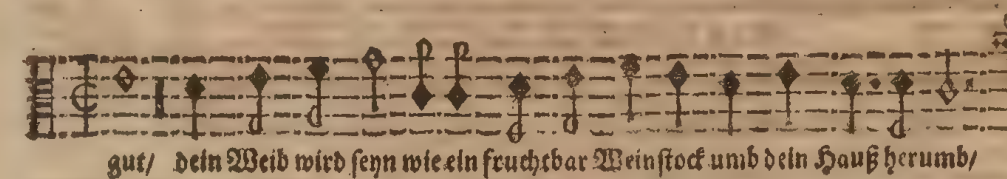 gut/ dein Weib wird seyn wie ein fruchtbar Weinstock umb dein Hauß herumb/